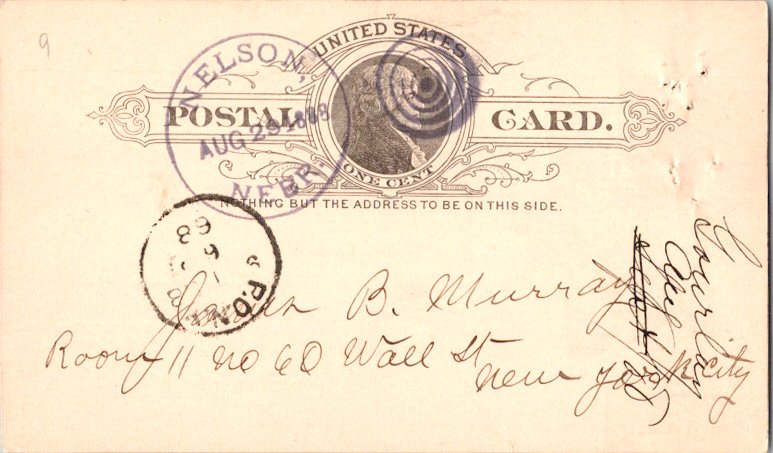 9
UNITED STATES
POSTAL CARD.
ONE CENT
NOTHING BUT THE ADDRESS TO BE ON THIS SIDE.
NELSON,
AUG 29 1888
NEBR
P.O.
88
James B. Murray
Room 11 no 60 Wall St
New York City
Gourlay